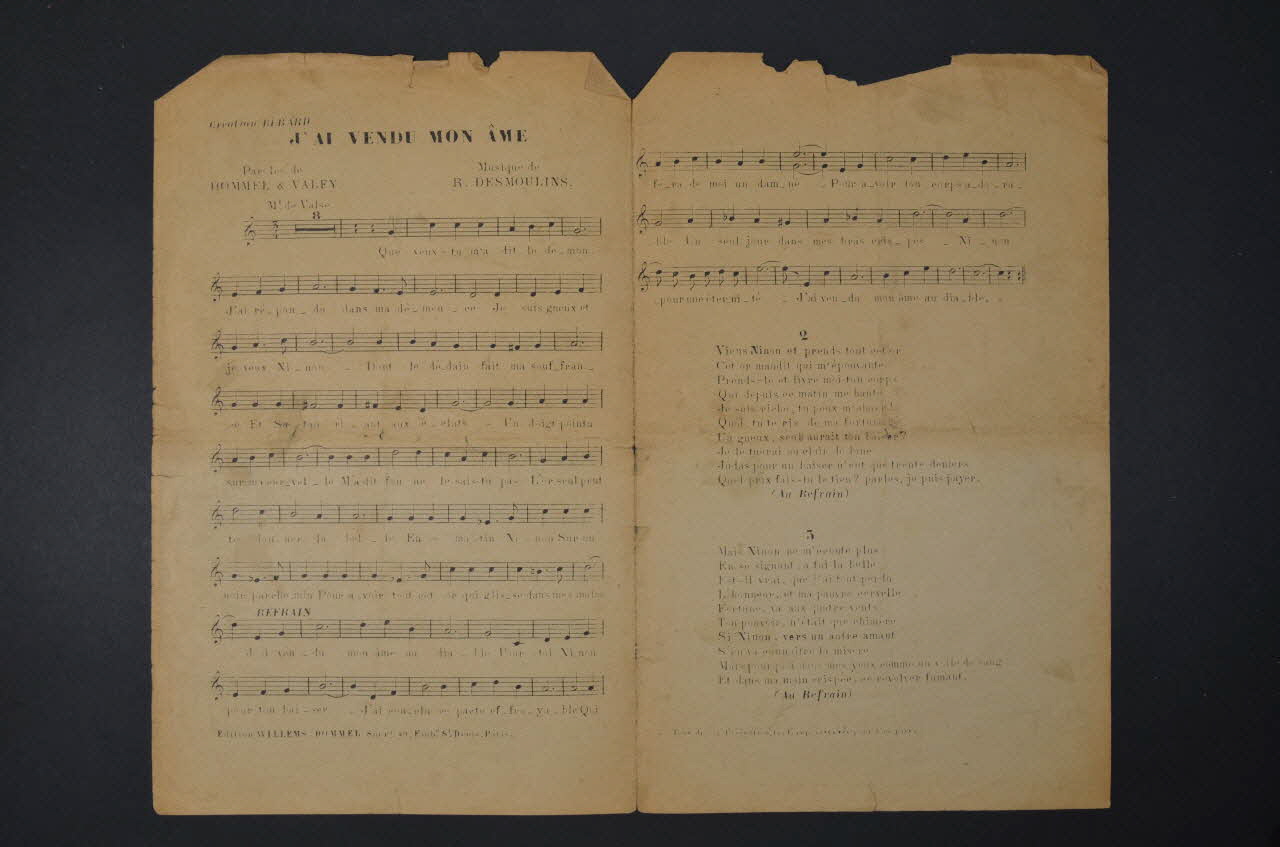 Création BÉRARD
J'AI VENDU MON ÂME
Paroles de
DOMMEL & VALFY
Musique de
R. DESMOULINS.
Mt de Valse
8
Que veux-tu m'a dit le dé-mon
J'ai ré-pon-du dans ma dé-men-ce Je suis gueux et
je veux Ni-non Dont le dé-dain fait ma souf-fran-
ce Et Sa-tan ri-ant aux é-clats Un doigt pointu
sur ma cer-vel-le M'a dit fou ne le sais-tu pas L'or seul peut
te don-ner la bel-le En ce ma-tin Ni-non Sur un
noir parche-min Pour a-voir tout cet or qui glis-se dans mes mains
REFRAIN
J'ai ven-du mon âme au dia-ble Pour toi Ninon
pour ton bai-ser J'ai con-clu ce pacte ef-fro-ya-ble Qui
Edition WILLEMS-DOMMEL Succr 49, Faubg St Denis, Paris.
fe-ra de moi un dam-né Pour a-voir ton corps a-do-ra-
ble Un seul jour dans mes bras cris-pés Ni-non
pour une éter-ni-té J'ai ven-du mon âme au dia-ble.
2
Viens Ninon et prends tout cet or
Cet or maudit qui m'épouvante
Prends-le et livre moi ton corps
Qui depuis ce matin me hante
Je suis riche, tu peux m'aimer!
Quoi, tu te ris de ma fortune
Un gueux, seul aurait ton baiser?
Je le tuerai au clair de lune
Judas pour un baiser n'eut que trente deniers
Quel prix fais-tu le tien? parles, je puis payer.
(Au Refrain)
3
Mais Ninon ne m'écoute plus
En se signant, a fui la belle
Est-il vrai, que j'ai tout perdu
L'honneur, et ma pauvre cervelle
Fortune, va aux quatre vents
Ton pouvoir, n'était que chimère
Si Ninon, vers un autre amant
S'en va connaître la misère
Mais pourquoi dans mes yeux comme un voile de sang
Et dans ma main crispée, ce revolver fumant.
(Au Refrain)